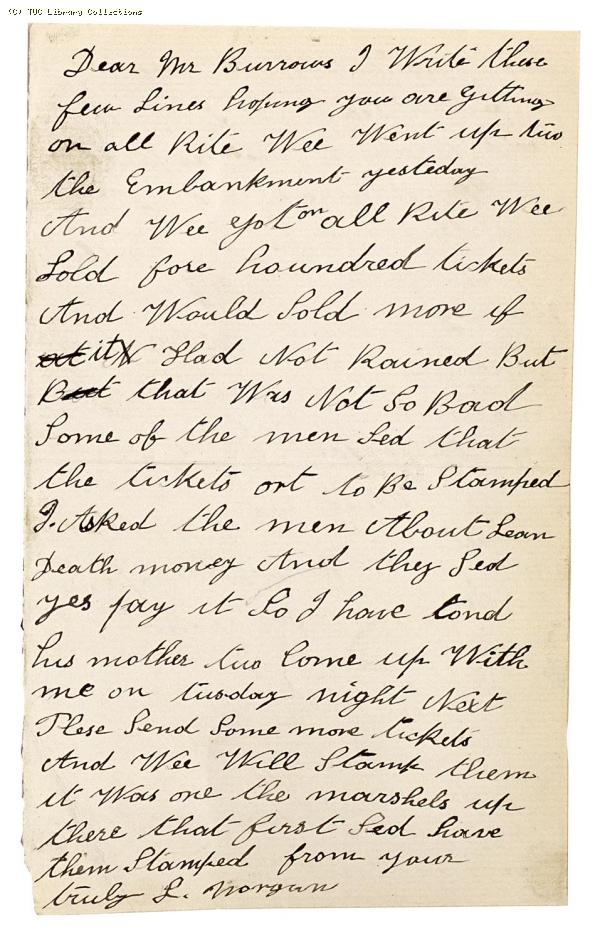 (C) TUC Library Collections
Dear Mr Burrows I Write these
few Lines hoping you are getting
on all Rite Wee Went up two
the Embankment yesteday
And Wee got on all Rite Wee
Sold fore houndred tickets
And Would Sold more if
it Had Not Rained But
that Was Not So Bad
Some of the men Sed that
the tickets ort to Be Stamped
I Asked the men About Lean
Death money And they Sed
yes pay it So I have tond
his mother two Come up With
me on tusday night Next
Plese Send Some more tickets
And Wee Will Stamp them
it Was one the marshels up
there that first Sed have
them Stamped from your
truly L.